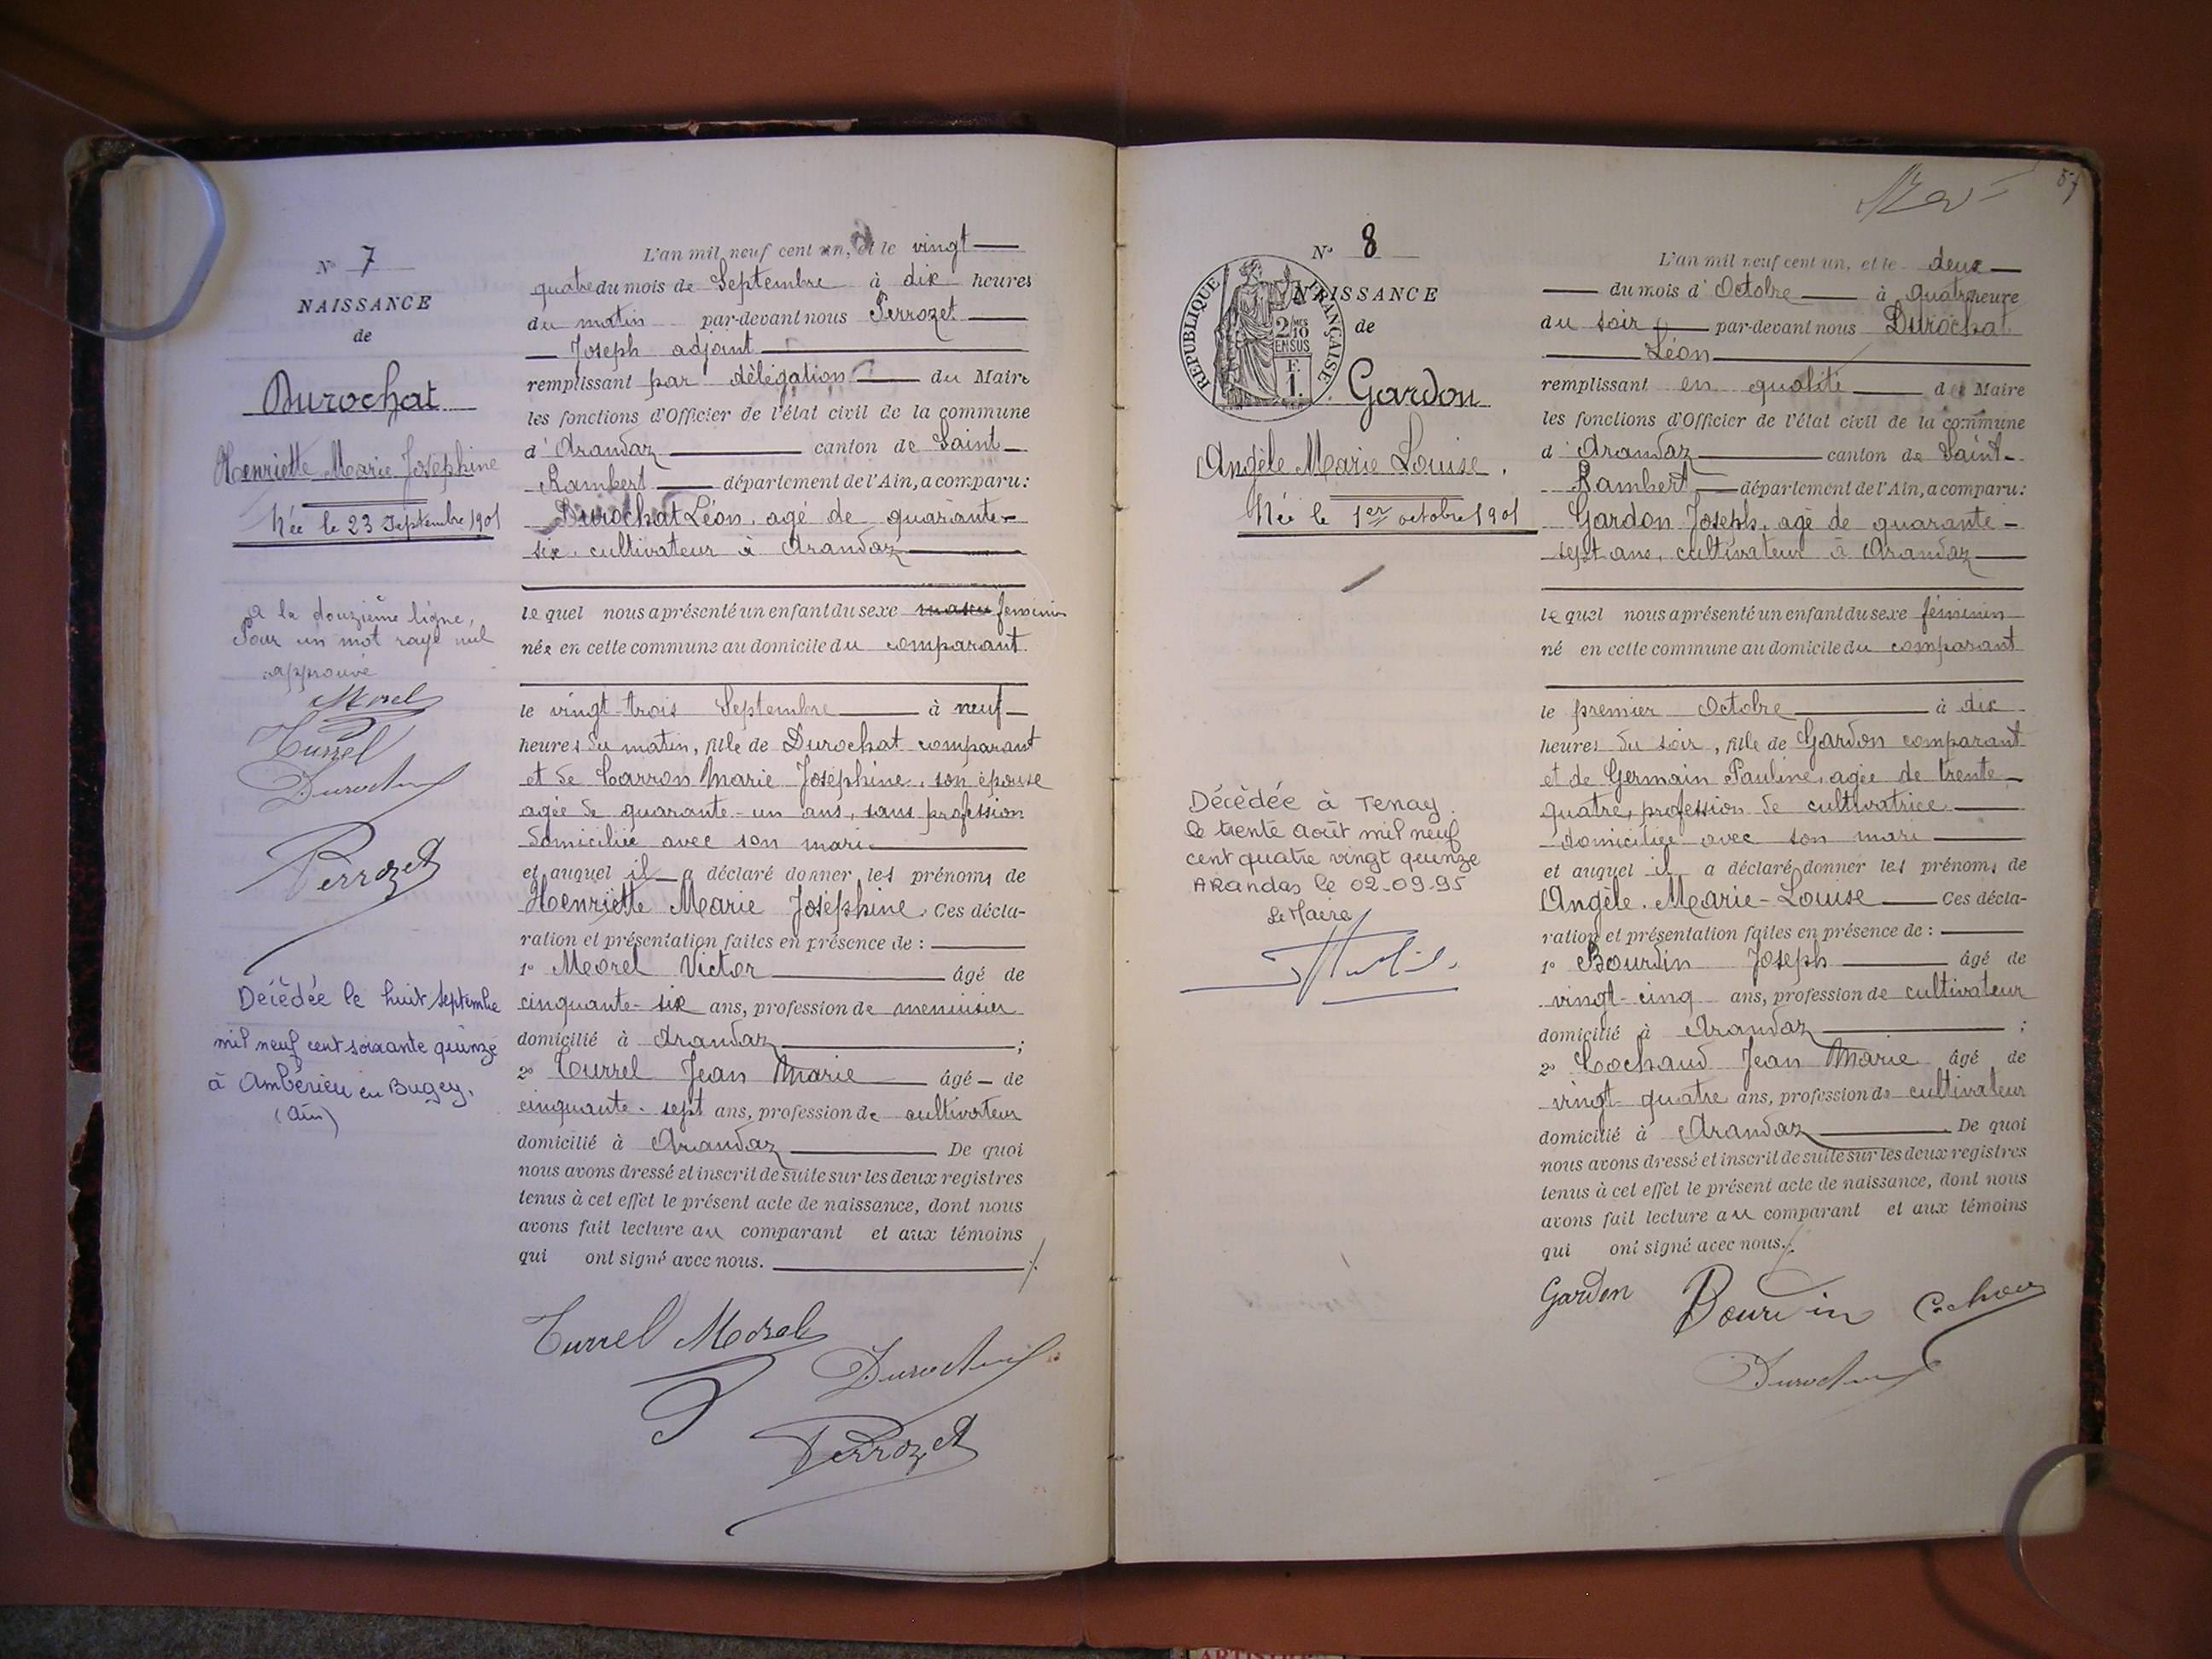 N° 7
NAISSANCE
de
Durochat
Henriette Marie Joséphine
Née le 23 Septembre 1901
a la douzième ligne,
Pour un mot rayé nul
approuvé
Morel
Turrel
Durochat
Perrozet
Décédée le huit septembre
mil neuf cent soixante quinze
à Ambérieu en Bugey.
(Ain)
L'an mil neuf cent un, et le vingt
quatre du mois de Septembre à dix heures
du matin par-devant nous Perrozet
Joseph adjoint
remplissant par délégation du Maire
les fonctions d'Officier de l'état civil de la commune
d'Arandaz canton de Saint-
Rambert département de l'Ain, a comparu:
Durochat Léon, agé de quarante-
six, cultivateur à Arandaz
le quel nous a présenté un enfant du sexe mascu feminin
née en cette commune au domicile du comparant
le vingt-trois Septembre à neuf
heures du matin, fille de Durochat comparant
et de Carron Marie Joséphine, son épouse
agée de quarante-un ans, sans profession
domiciliée avec son mari
et auquel il a déclaré donner les prénoms de
Henriette Marie Joséphine. Ces décla-
ration et présentation faites en présence de :
1° Morel Victor âgé de
cinquante-six ans, profession de menuisier
domicilié à Arandaz ;
2° Turrel Jean Marie âgé de
cinquante-sept ans, profession de cultivateur
domicilié à Arandaz De quoi
nous avons dressé et inscrit de suite sur les deux registres
tenus à cet effet le présent acte de naissance, dont nous
avons fait lecture au comparant et aux témoins
qui ont signé avec nous. ./.
Turrel Morel
Durochat
Perrozet
87
N° 8
RÉPUBLIQUE FRANÇAISE
2/10 EN SUS
F. 1.
NAISSANCE
de
Gardon
Angèle Marie Louise.
Née le 1er octobre 1901
Décédée à Tenay.
le trente août mil neuf
cent quatre vingt quinze
Arandas le 02-09-95
Le Maire
L'an mil neuf cent un, et le deux
du mois d'Octobre à quatre heure
du soir par-devant nous Durochat
Léon
remplissant en qualité de Maire
les fonctions d'Officier de l'état civil de la commune
d'Arandaz canton de Saint-
Rambert département de l'Ain, a comparu:
Gardon Joseph, agé de quarante-
sept ans, cultivateur à Arandaz
le quel nous a présenté un enfant du sexe féminin
né en cette commune au domicile du comparant
le premier Octobre à dix
heures du soir, fille de Gardon comparant
et de Germain Pauline, agée de trente
quatre, profession de cultivatrice
domiciliée avec son mari
et auquel il a déclaré donner les prénoms de
Angèle. Marie-Louise Ces décla-
ration et présentation faites en présence de :
1° Bourdin Joseph âgé de
vingt-cinq ans, profession de cultivateur
domicilié à Arandaz ;
2° Cochaud Jean Marie âgé de
vingt-quatre ans, profession de cultivateur
domicilié à Arandaz. De quoi
nous avons dressé et inscrit de suite sur les deux registres
tenus à cet effet le présent acte de naissance, dont nous
avons fait lecture au comparant et aux témoins
qui ont signé avec nous./.
Gardon Bourdin Cochaud
Durochat